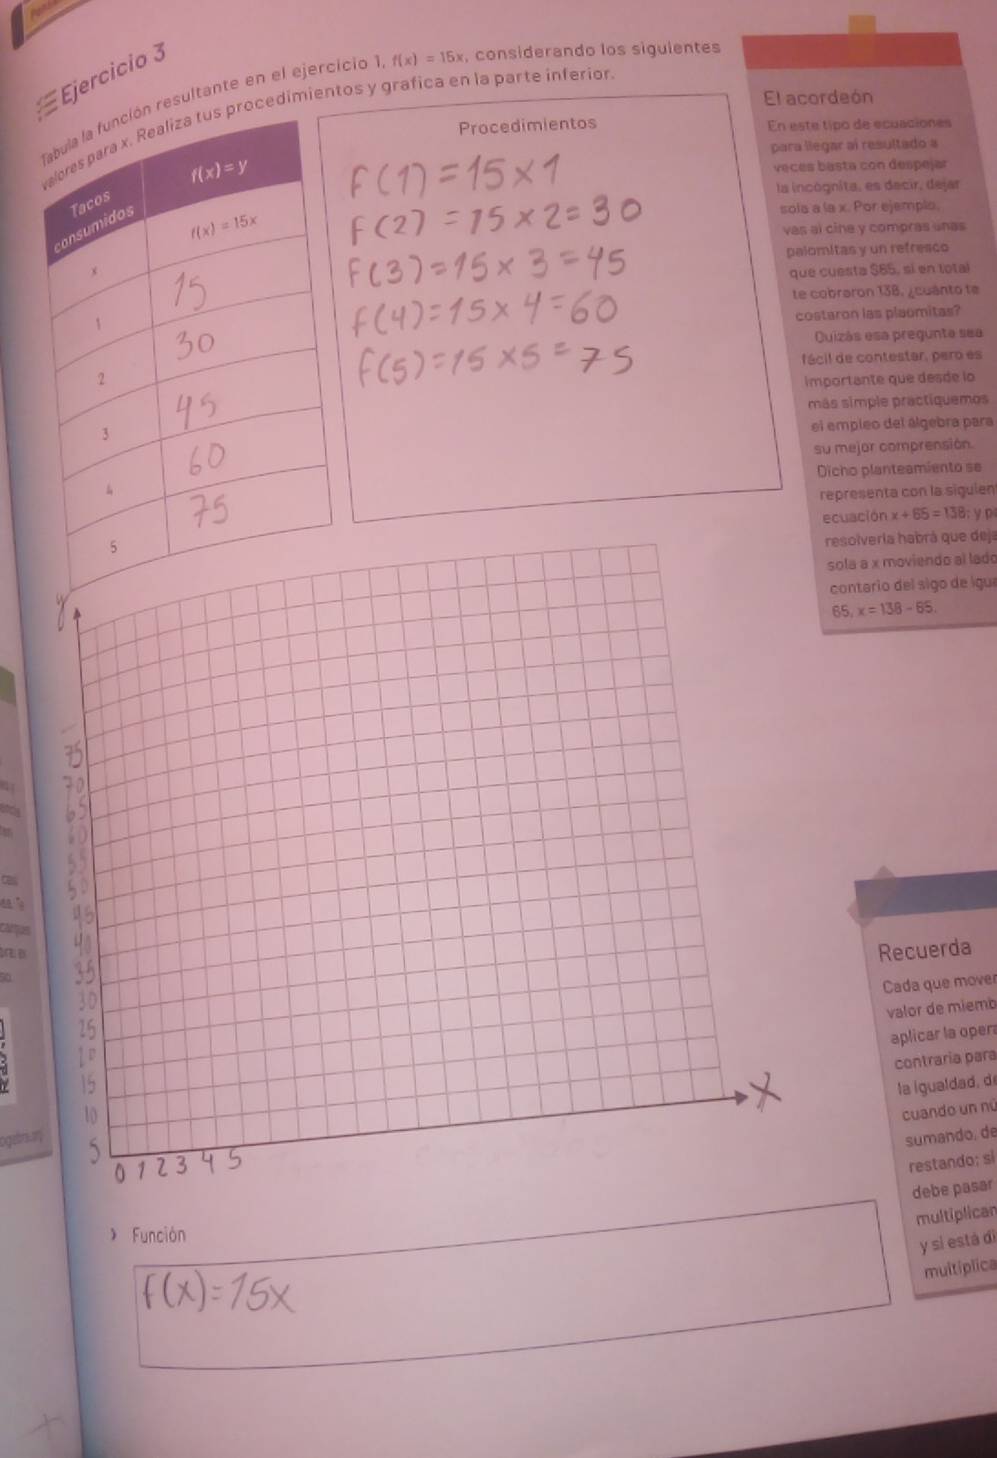 Ejercicio 3
Tabula la función resultante en el ejercicio 1, f(x) = 15x, considerando los siguientes
valores para x. Realiza tus procedimientos y grafica en la parte inferior.
Tacos
consumidos
f(x) = y
x
f(x) = 15x
1
15
2
30
3
45
4
60
5
75
Procedimientos
F(1) = 15 × 1
F(2) = 15 × 2 = 30
F(3) = 15 × 3 = 45
F(4) = 15 × 4 = 60
F(5) = 15 × 5 = 75
El acordeón
En este tipo de ecuaciones
para llegar al resultado a
veces basta con despejar
la incógnita, es decir, dejar
sola a la x. Por ejemplo,
vas al cine y compras unas
palomitas y un refresco
que cuesta $65, si en total
te cobraron 138, ¿cuánto te
costaron las plaomitas?
Quizás esa pregunta sea
fácil de contestar, pero es
importante que desde lo
más simple practiquemos
el empleo del álgebra para
su mejor comprensión.
Dicho planteamiento se
representa con la siguien
ecuación x + 65 = 138; y p
resolverla habrá que deja
sola a x moviendo al lado
contario del sigo de igua
65, x = 138 - 65.
y
75
70
65
60
55
50
45
40
35
30
25
20
15
10
5
0 1 2 3 4 5
X
Función
f(x) = 15x
Recuerda
Cada que mover
valor de miemb
aplicar la oper
contraria para
la igualdad, de
cuando un nú
sumando, de
restando; si
debe pasar
multiplican
y si está di
multiplica